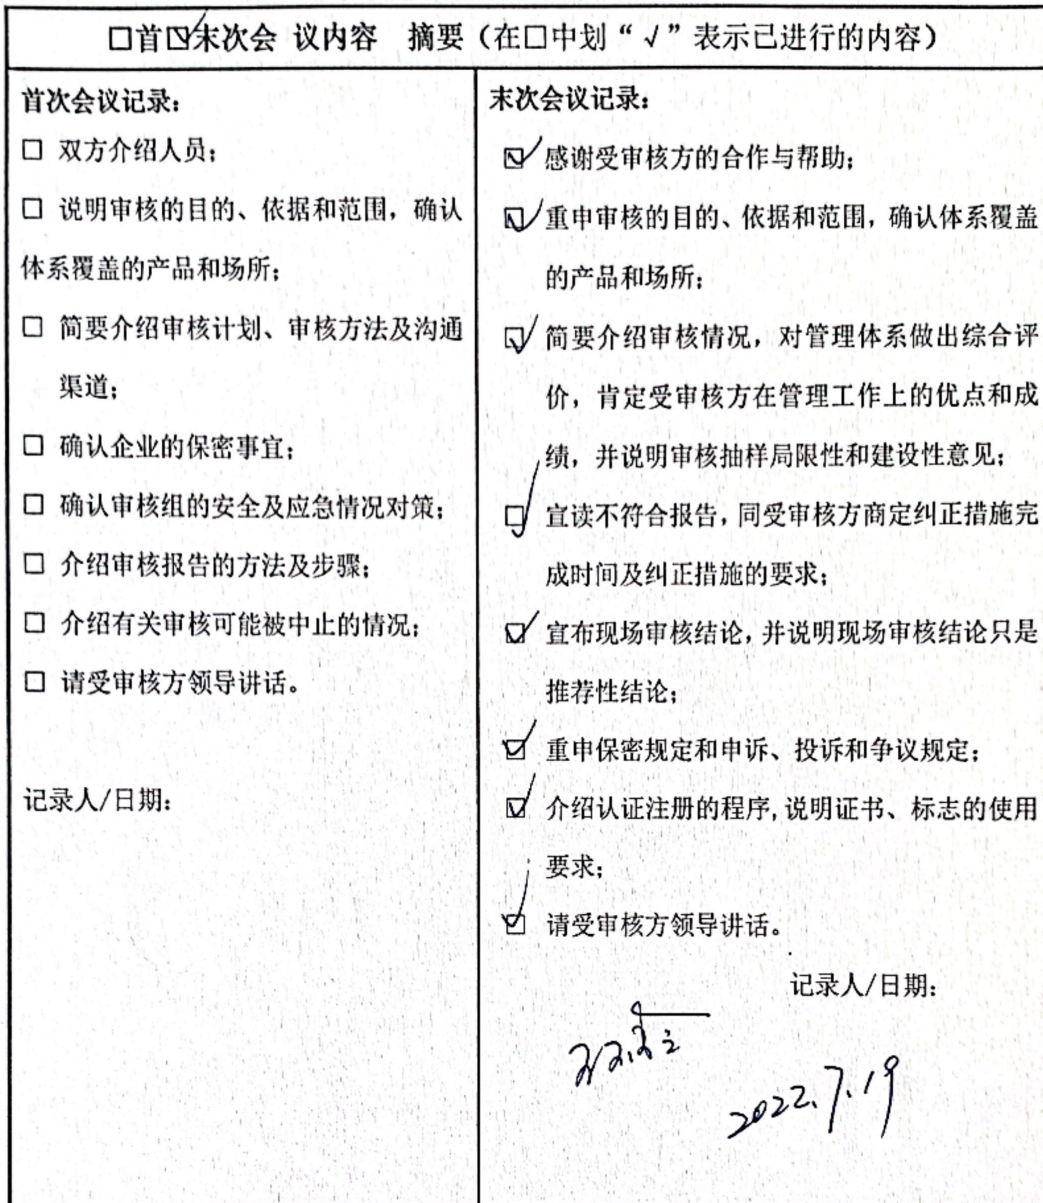 □首☑末次会 议内容 摘要（在□中划“√”表示已进行的内容）
首次会议记录：
□ 双方介绍人员；
□ 说明审核的目的、依据和范围，确认
体系覆盖的产品和场所；
□ 简要介绍审核计划、审核方法及沟通
渠道；
□ 确认企业的保密事宜；
□ 确认审核组的安全及应急情况对策；
□ 介绍审核报告的方法及步骤；
□ 介绍有关审核可能被中止的情况；
□ 请受审核方领导讲话。
记录人/日期：
末次会议记录：
☑ 感谢受审核方的合作与帮助；
☑ 重申审核的目的、依据和范围，确认体系覆盖
的产品和场所；
☑ 简要介绍审核情况，对管理体系做出综合评
价，肯定受审核方在管理工作上的优点和成
绩，并说明审核抽样局限性和建设性意见；
☑ 宣读不符合报告，同受审核方商定纠正措施完
成时间及纠正措施的要求；
☑ 宣布现场审核结论，并说明现场审核结论只是
推荐性结论；
☑ 重申保密规定和申诉、投诉和争议规定；
☑ 介绍认证注册的程序，说明证书、标志的使用
要求；
☑ 请受审核方领导讲话。
记录人/日期：
2022.7.19